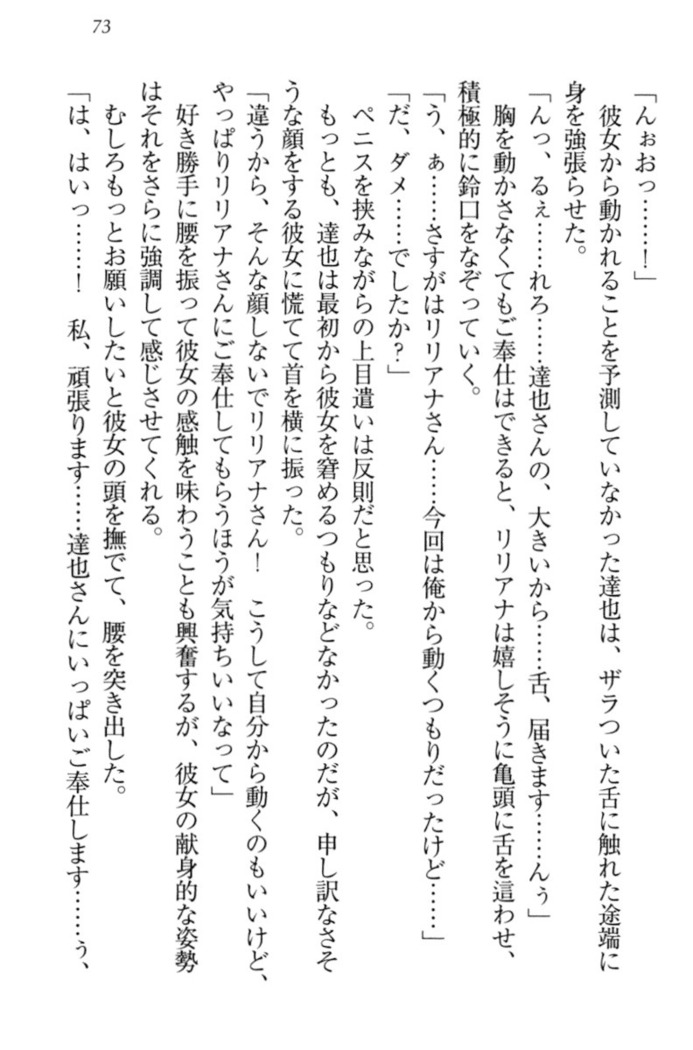 73
「んぉおっ………！」
彼女から動かれることを予測していなかった達也は、ザラついた舌に触れた途端に
身を強張らせた。
「んっ、るぇ……れろ……達也さんの、大きいから……舌、届きます……んぅ」
胸を動かさなくてもご奉仕はできると、リリアナは嬉しそうに亀頭に舌を這わせ、
積極的に鈴口をなぞっていく。
「う、ぁ……さすがはリリアナさん……今回は俺から動くつもりだったけど……」
「だ、ダメ……でしたか？」
ペニスを挟みながらの上目遣いは反則だと思った。
もっとも、達也は最初から彼女を窘めるつもりなどなかったのだが、申し訳なさそ
うな顔をする彼女に慌てて首を横に振った。
「違うから、そんな顔しないでリリアナさん！　こうして自分から動くのもいいけど、
やっぱりリリアナさんにご奉仕してもらうほうが気持ちいいなって」
好き勝手に腰を振って彼女の感触を味わうことも興奮するが、彼女の献身的な姿勢
はそれをさらに強調して感じさせてくれる。
むしろもっとお願いしたいと彼女の頭を撫でて、腰を突き出した。
「は、はいっ……！　私、頑張ります……達也さんにいっぱいご奉仕します……ぅ、